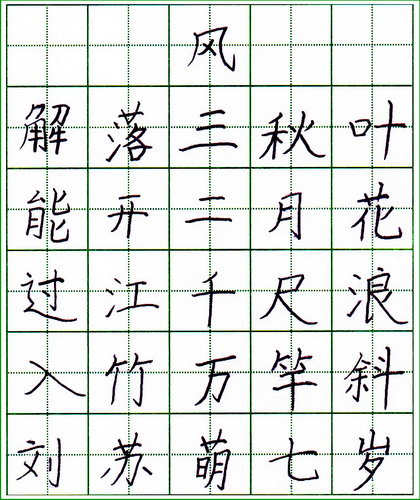 风
解落三秋叶
能开二月花
过江千尺浪
入竹万竿斜
刘苏萌七岁